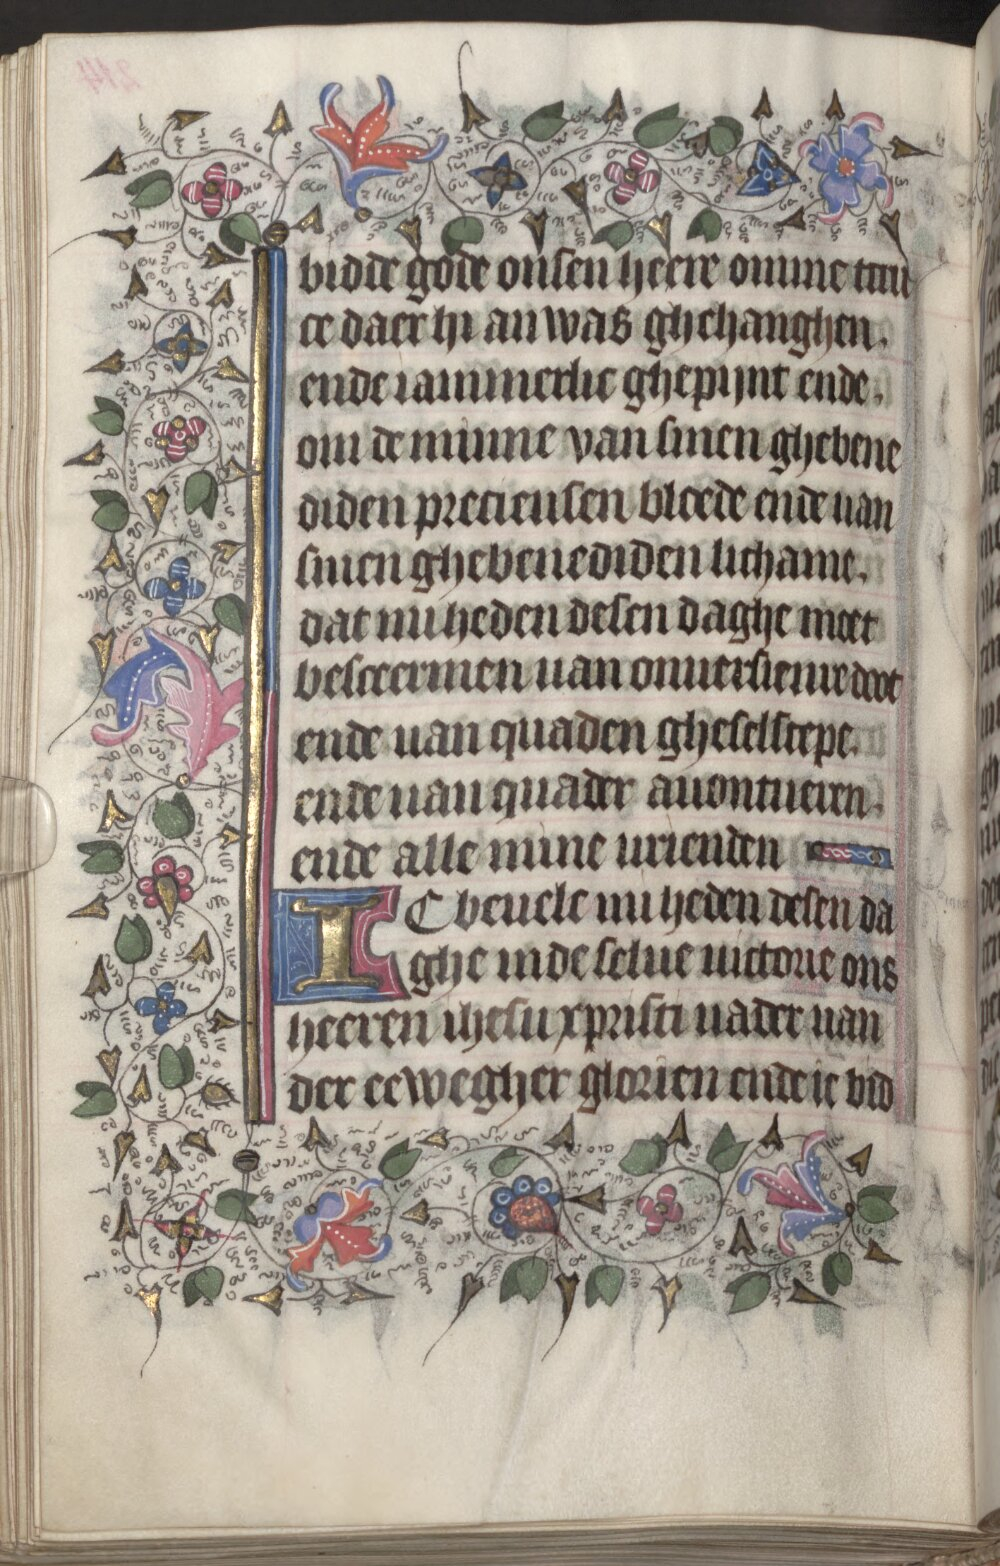 bidde gode onsen heere omme tcru
ce daer hi an was ghehanghen.
ende iammerlic ghepijnt ende.
om de minne van sinen ghebene
diden preciensen bloede ende uan
sinen ghebenediden lichame.
dat mi heden desen daghe moet
besceermen uan onuersienre doot
ende uan quaden gheselscepe.
ende uan quader auontueren.
ende alle mine urienden
IC beuele mi heden desen da
ghe in de selue uictorie ons
heeren ihesu xpristi uader uan
der eewegher glorien ende ic bid